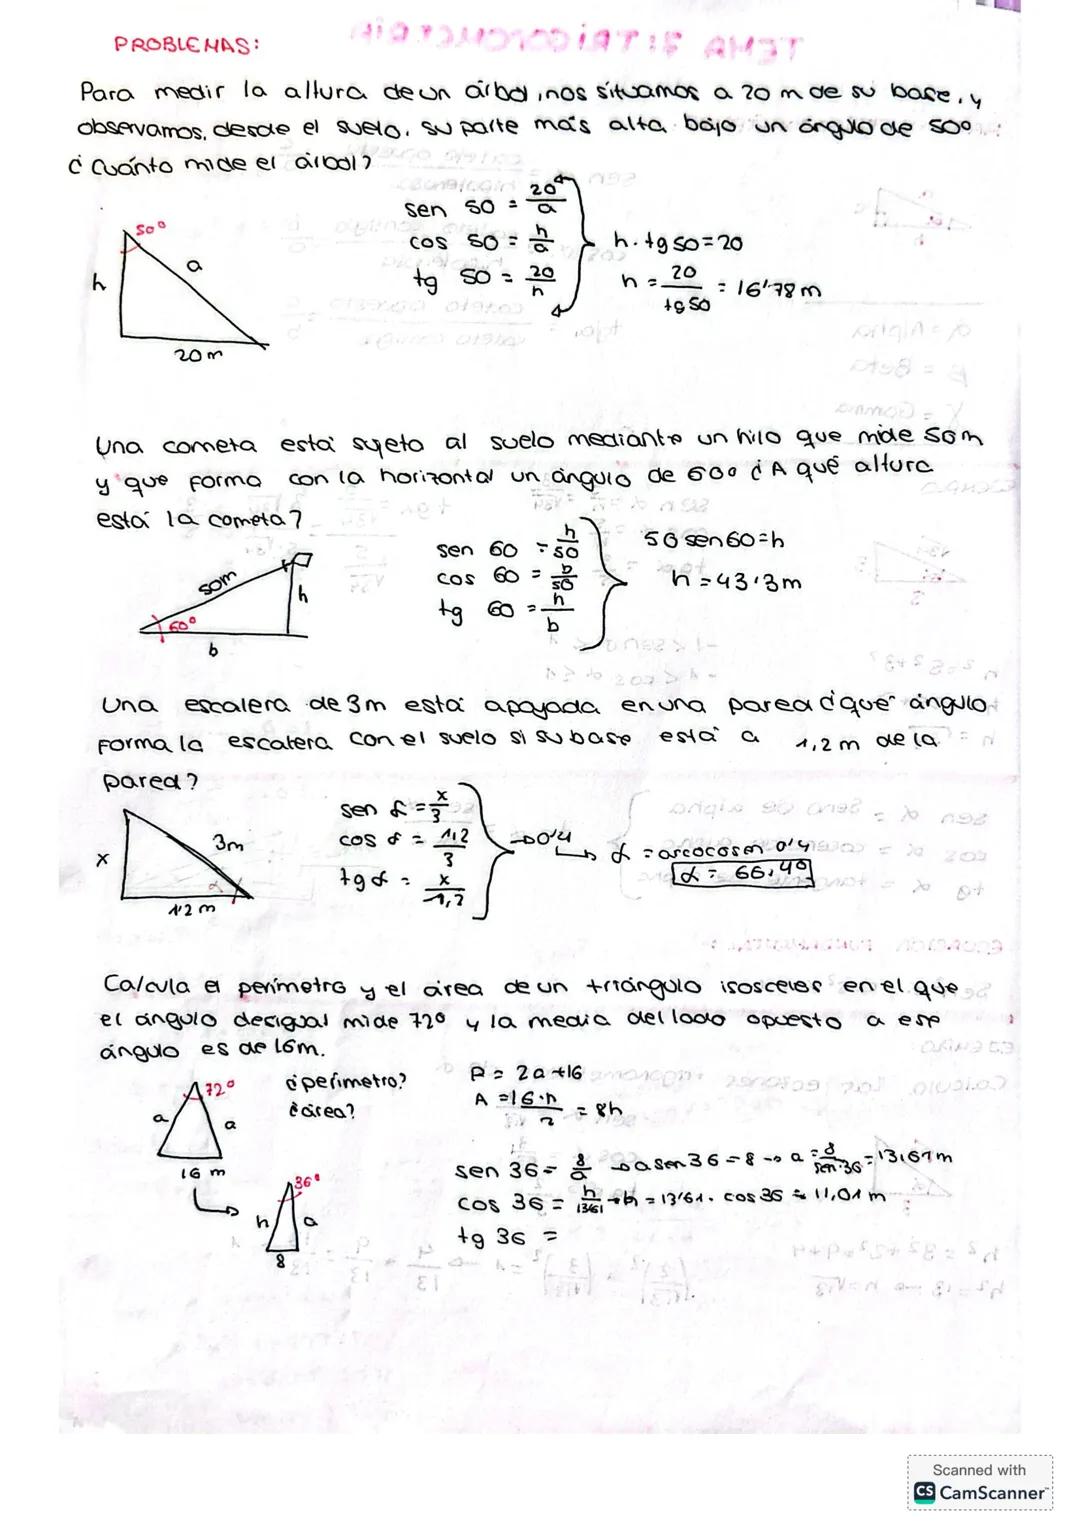 PROBLEMAS:
Para medir la altura de un árbol, nos situamos a 20 m de su base, y
observamos, desde el suelo, su parte más alta bajo un ángulo de 50º
¿Cuánto mide el árbol?
sen 50 = 20/a
cos 50 = h/a
tg 50 = 20/h
h · tg 50 = 20
h = 20/tg 50 = 16'78 m
50º
h
a
20 m
Una cometa está sujeta al suelo mediante un hilo que mide 50m
y que forma con la horizontal un ángulo de 60º ¿A qué altura
está la cometa?
sen 60 = h/50
cos 60 = b/50
tg 60 = h/b
50 sen 60 = h
h = 43'3 m
50m
h
60º
b
Una escalera de 3m está apoyada en una pared ¿qué ángulo
forma la escalera con el suelo si su base está a 1,2 m de la
pared?
sen α = x/3
cos α = 1,2/3
tg α = x/1,2
→ 0'4
α = arcocosen 0'4
α = 66,4º
x
3m
α
1'2 m
Calcula el perímetro y el área de un triángulo isosceles en el que
el ángulo desigual mide 72º y la media del lado opuesto a ese
ángulo es de 16m.
72º
a
a
16 m
¿perímetro?
¿área?
P = 2a + 16
A = 16·h/2 = 8h
36º
h
a
8
sen 36 = 8/a → a sen 36 = 8 → a = 8/sen 36 = 13,61 m
cos 36 = h/13'61 → h = 13'61 · cos 36 = 11,01 m
tg 36 =
Scanned with
CS CamScanner